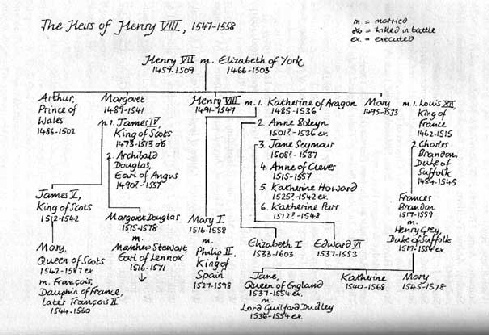 The Heirs of Henry VIII, 1547-1558
m. = married
kb = killed in battle
ex. = executed
Henry VII m. Elizabeth of York
1457-1509 1466-1503
Arthur,
Prince of
Wales
1486-1502
Margaret
1489-1541
m. 1. James IV
King of Scots
1473-1513 kb
2. Archibald
Douglas,
Earl of Angus
1490?-1557
Henry VIII
1491-1547
m. 1. Katherine of Aragon
1485-1536
2. Anne Boleyn
1501?-1536 ex.
3 Jane Seymour
1508?-1537
4. Anne of Cleves
1515-1557
5 Katherine Howard
1525?-1542 ex.
6. Katherine Parr
1512?-1548
Mary
1495-1533
m. 1. Louis XII
King of
France
1462-1515
2 Charles
Brandon,
Duke of
Suffolk
1484-1545
James V,
King of Scots
1512-1542
Margaret Douglas
1515-1578
m.
Matthew Stewart
Earl of Lennox
1516-1571
Mary I
1516-1558
m.
Philip II,
King of
Spain
1527-1598
Elizabeth I
1533-1603
Edward VI
1537-1553
Frances
Brandon
1517-1559
m.
Henry Grey,
Duke of Suffolk
1517-1554 ex
Mary,
Queen of Scots
1542-1587 ex
m. François,
Dauphin of France,
later François II
1544-1560
Jane,
Queen of England
1537-1554 ex.
m.
Lord Guilford Dudley
1536-1554 ex.
Katherine
1540-1568
Mary
1545-1578